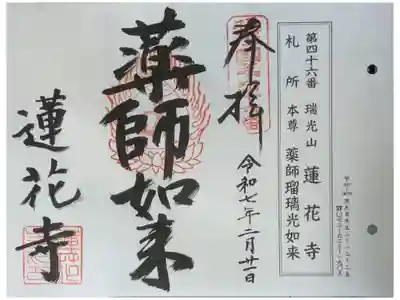 第四十六番 瑞光山 蓮花寺
札所 本尊 薬師瑠璃光如来
奉拝
令和七年二月廿一日
薬師如来
蓮花寺